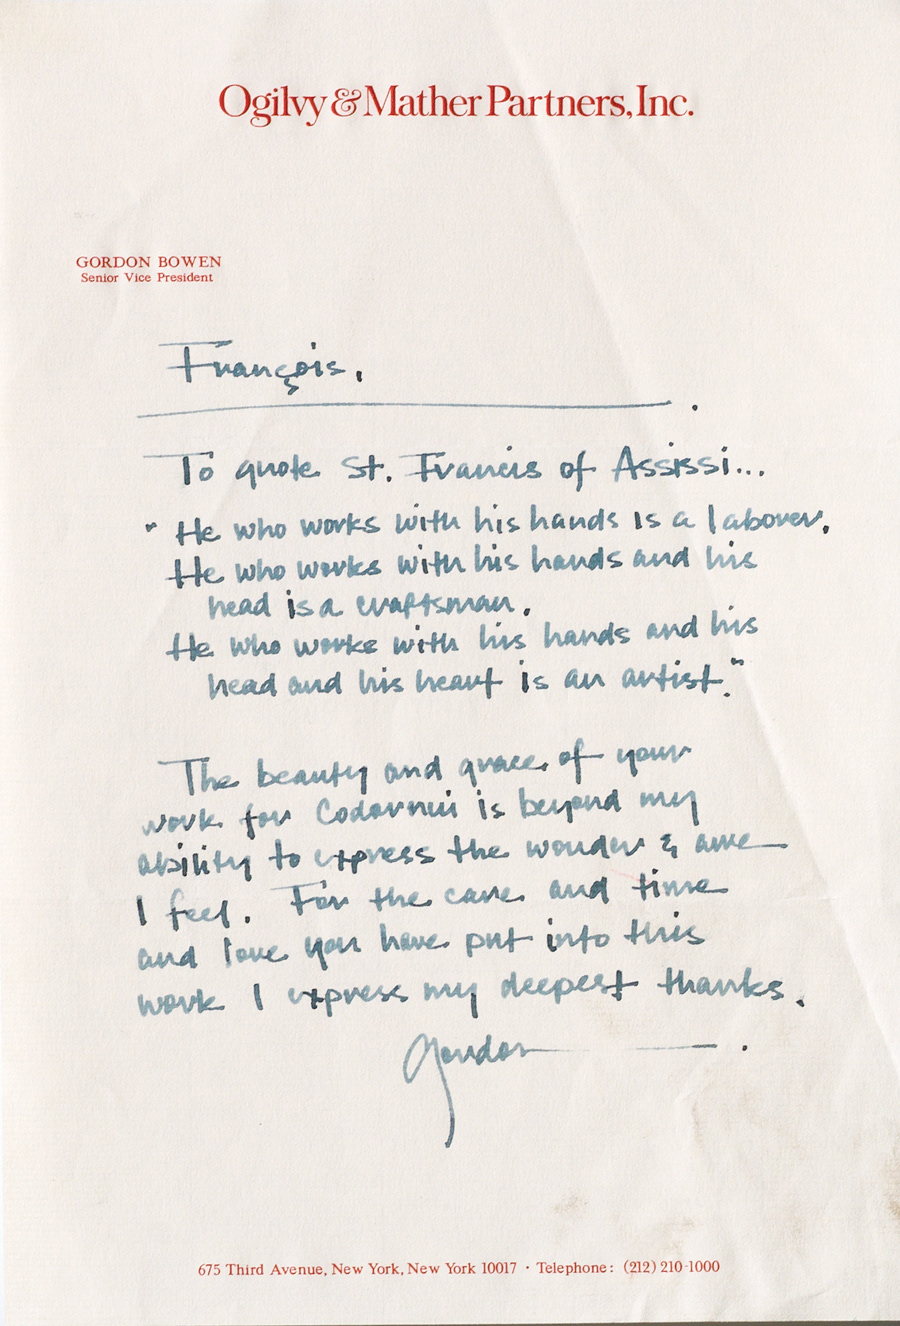 Ogilvy & Mather Partners, Inc.
GORDON BOWEN
Senior Vice President
François,
To quote St. Francis of Assissi...
"He who works with his hands is a laborer.
He who works with his hands and his
head is a craftsman.
He who works with his hands and his
head and his heart is an artist."
The beauty and grace of your
work for Codorniu is beyond my
ability to express the wonder & awe
I feel. For the care and time
and love you have put into this
work I express my deepest thanks.
Gordon
675 Third Avenue, New York, New York 10017 · Telephone: (212) 210-1000